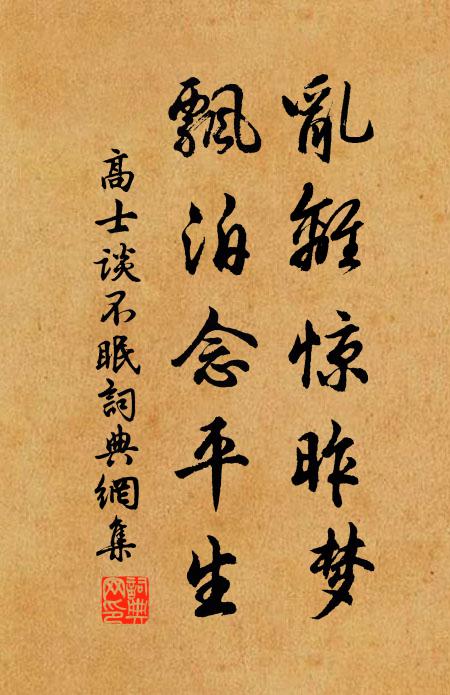 亂離惊昨梦
飄泊念平生
高士谈不眠詞典網集
詞典網印